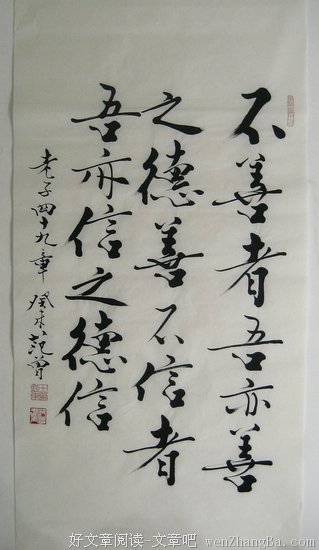 不善者吾亦善
之德善不信者
吾亦信之德信
老子四十九章 癸未 范曾
好文章阅读-文章吧 wenZhangBa.com